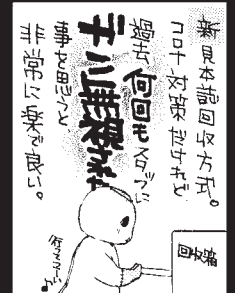 新見本誌回収方式。
コロナ対策だけれど
過去何回もスタッフに
ガン無視された
事を思うと、
非常に楽で良い。
回収箱